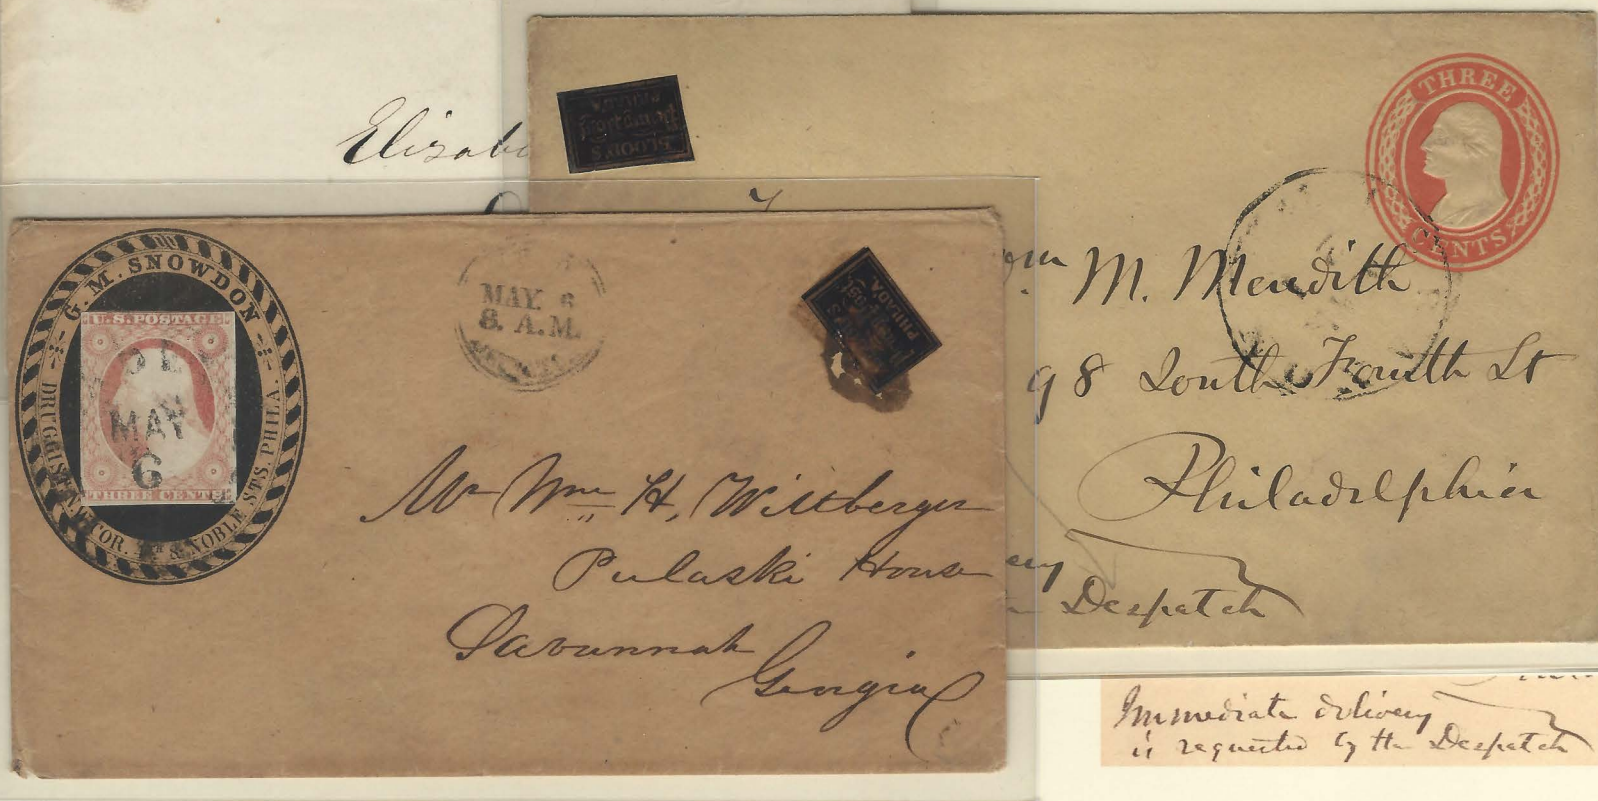 Elizab
BLOOD'S
Penny Post
PHILADA
THREE
CENTS
M. Meredith
98 South Fourth St
Philadelphia
Despatch
G. M. SNOWDON
DRUGGIST, N.W. COR. & NOBLE STS. PHILA.
U.S. POSTAGE
THREE CENTS
MAY
6
MAY 6
8. A.M.
Penny Post
PHILADA.
Mr Wm H. Wiltberger
Pulaski House
Savannah
Georgia
Immediate delivery
is requested by the Despatch